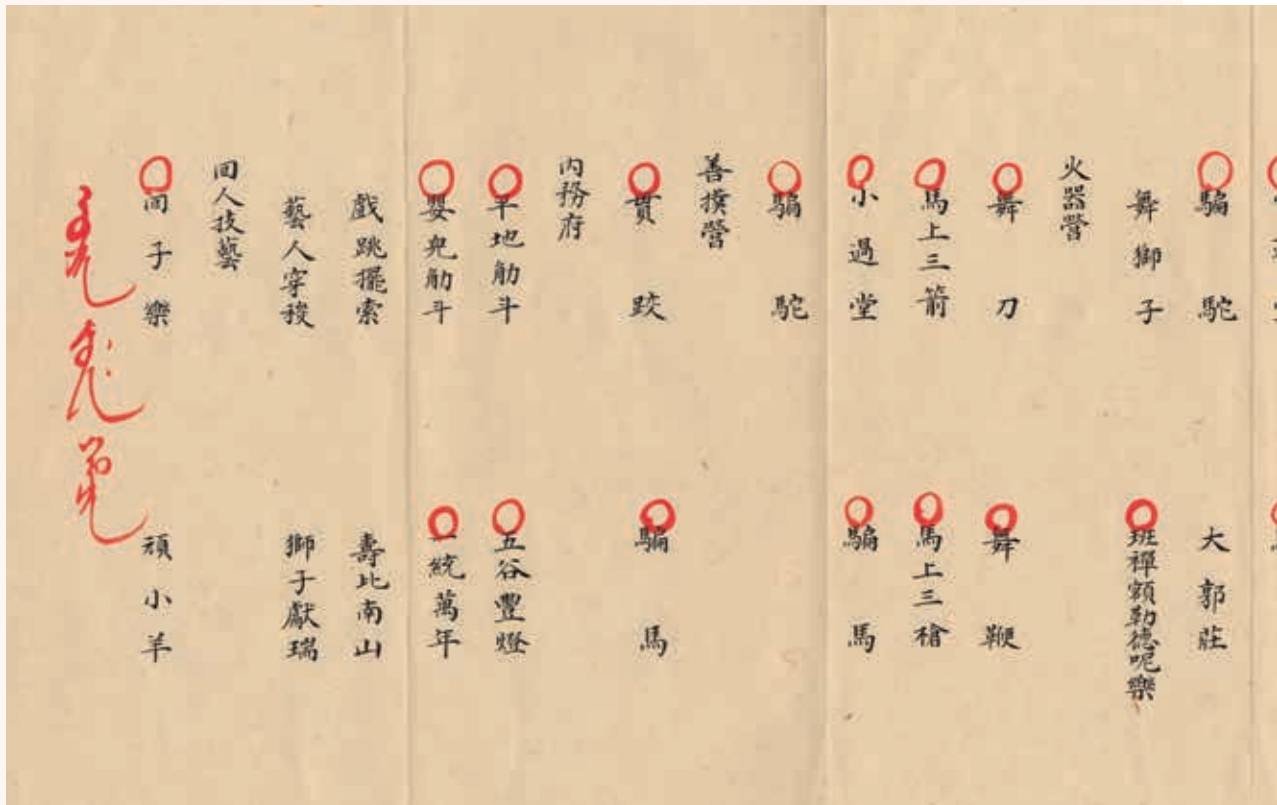 騙駝 大郭莊
舞獅子 班禪額勒德呢樂
火器營
舞刀 舞鞭
馬上三箭 馬上三槍
小過堂 騙馬
騙駝
善撲營
貫跤 騙馬
內務府
平地觔斗 五谷豐燈
嬰兒觔斗 一統萬年
戲跳擺索 壽比南山
藝人穿梭 獅子獻瑞
囬人技藝
囬子樂 頑小羊